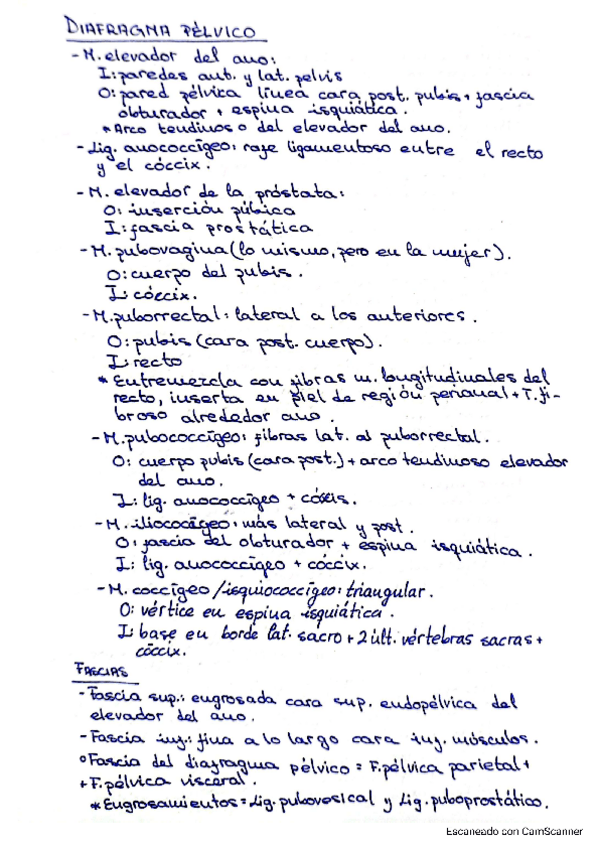 DIAFRAGMA PÉLVICO
- M. elevador del ano:
I: paredes ant. y lat. pelvis
O: pared pélvica línea cara post. pubis + fascia
obturador + espina isquiática.
* Arco tendinoso del elevador del ano.
- Lig. anococcígeo: rafe ligamentoso entre el recto
y el cóccix.
- M. elevador de la próstata:
O: inserción púbica
I: fascia prostática
- M. pubovagina (lo mismo, pero en la mujer).
O: cuerpo del pubis.
I: cóccix.
- M. puborrectal: lateral a los anteriores.
O: pubis (cara post. cuerpo).
I: recto
* Entremezcla con fibras m. longitudinales del
recto, inserta en piel de región perianal + T. fi-
broso alrededor ano.
- M. pubococcígeo: fibras lat. al puborrectal.
O: cuerpo pubis (cara post.) + arco tendinoso elevador
del ano.
I: lig. anococcígeo + cóxis.
- M. iliococígeo: más lateral y post.
O: fascia del obturador + espina isquiática.
I: lig. anococcígeo + cóccix.
- M. coccígeo / isquiococcígeo: triangular.
O: vértice en espina isquiática.
I: base en borde lat. sacro + 2 últ. vértebras sacras +
cóccix.
FASCIAS
- Fascia sup.: engrosada cara sup. endopélvica del
elevador del ano.
- Fascia inf.: fina a lo largo cara inf. músculos.
° Fascia del diafragma pélvico = F. pélvica parietal +
+ F. pélvica visceral.
* Engrosamientos = Lig. pubovesical y Lig. puboprostático.
Escaneado con CamScanner